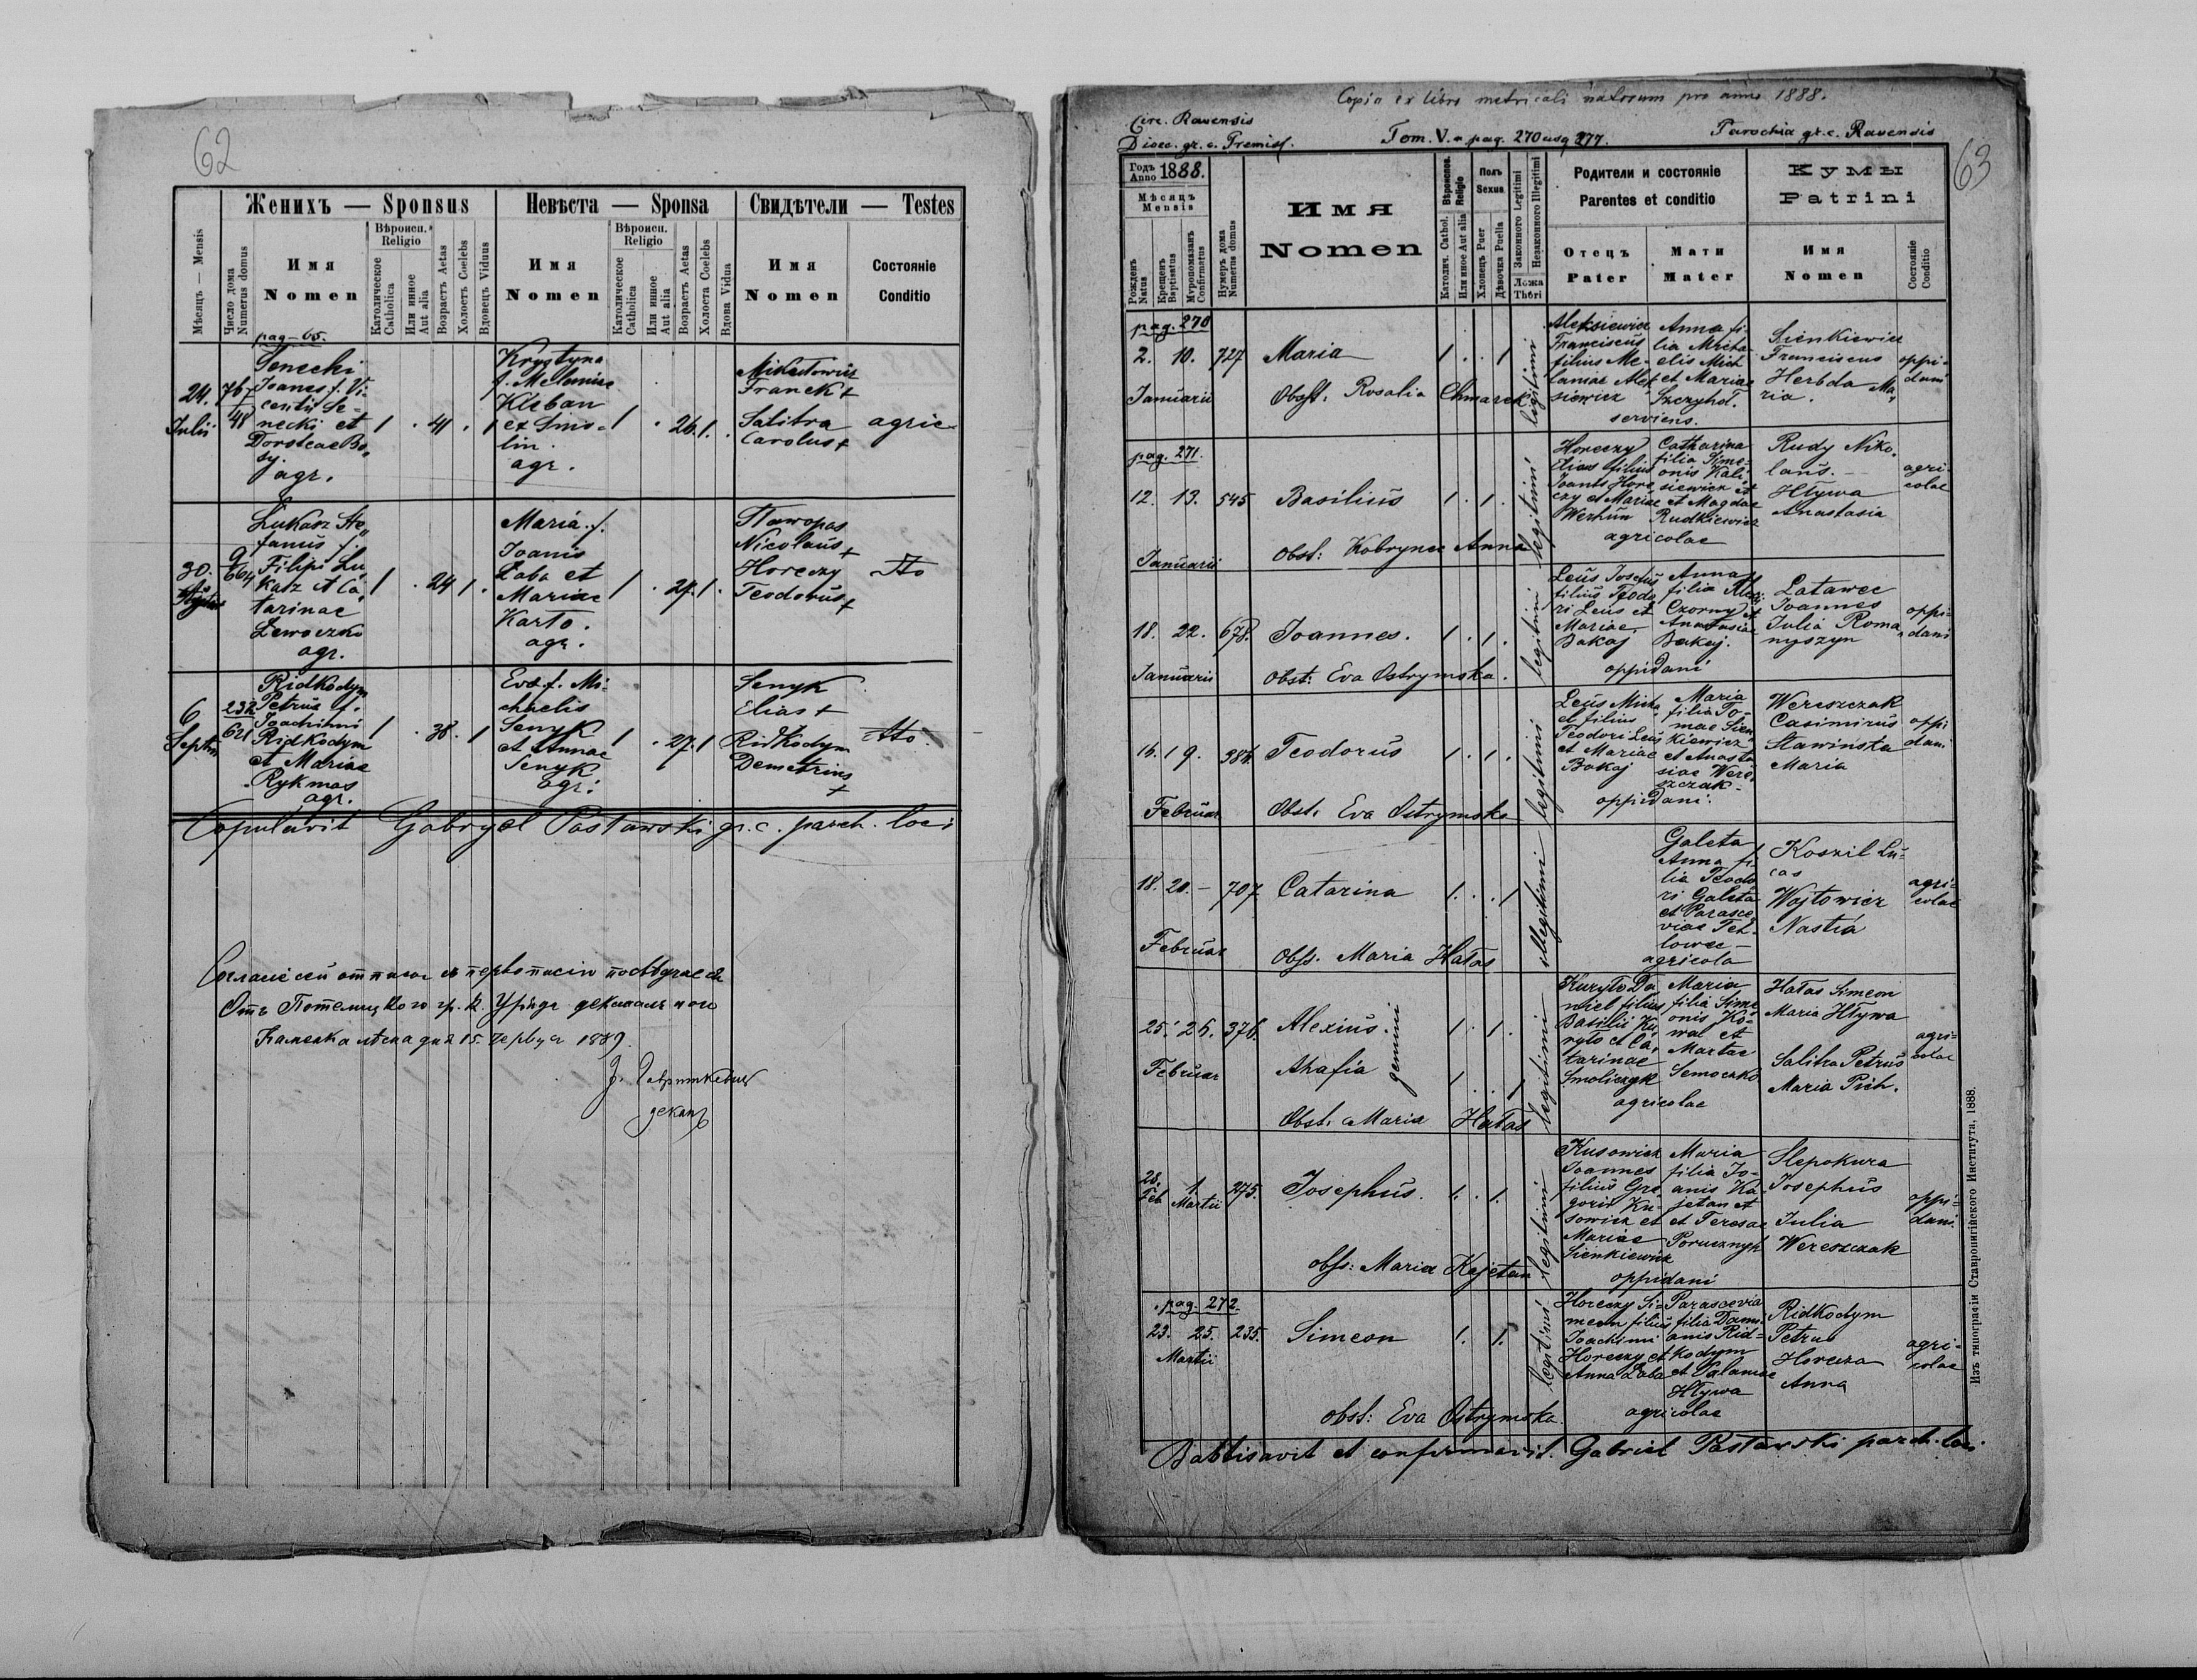 62
Женихъ — Sponsus
Невѣста — Sponsa
Свидѣтели — Testes
Мѣсяцъ — Mensis
Число дома
Numerus domus
Имя
Nomen
Вѣроисп.
Religio
Католическое
Catholica
Или инное
Aut alia
Возрастъ Aetas
Холостъ Coelebs
Вдовецъ Viduus
Имя
Nomen
Вѣроисп.
Religio
Католическое
Catholica
Или инное
Aut alia
Возрастъ Aetas
Холоста Coelebs
Вдова Vidua
Имя
Nomen
Состояніе
Conditio
pag - 65.
24.
Julii
767
48
Senecki
Joanes f. Vi-
centii Se-
necki et
Doroteae Bo
sy.
agr.
1 . 41 . 1
Krystyna
f. Melaniae
Kleban
ex Smo-
lin.
agr.
1 . 26. 1 .
Franck +
Salitra
Carolus +
agric
30.
9
664
Lukasz Ste
fanus f.
Filipi Lu
kasz et Ca
tarinae
Lewoczko
agr.
1 . 24 1 .
Maria f.
Joanis
Łaba et
Mariae
Karto.
agr.
1 . 27. 1 .
Nicolaus +
Horeczy
Teodorus +
tto
6
Septm
232
621
Ridkodym
Petrus f.
Joachimi
Ridkodym
et Mariae
Rykmas
agr.
1 . 38 . 1
Eva f. Mi-
chaelis
Senyk
et Annae
Senyk
agr.
1 . 27. 1
Senyk
Elias +
Ridkodym
Demetrius
+
tto
Copulavit Gabryel Pasławski gr. c. parch. loci
Отъ Потелицкого гр. к. Уряда деканального
Каменка лѣсна дня 15. Червця 1889.
деканъ
Copia ex libro metricali natorum pro anno 1888.
Circ. Ravensis
Dioec. gr. c. Premisl.
Tom. V. a pag. 270 usq 277.
Parochia gr. c. Ravensis
63
Годъ
Anno 1888.
Мѣсяцъ
Mensis
Рожденъ
Natus
Крещенъ
Baptisatus
Мѵропомазанъ
Confirmatus
Нумеръ дома
Numerus domus
Имя
Nomen
Вѣроиспов.
Religio
Католич. Cathol.
Или иное Aut alia
Полъ
Sexus
Хлопецъ Puer
Дѣвочка Puella
Законного Legitimi
Незаконного Illegitimi
Ложа
Thori
Родители и состояніе
Parentes et conditio
Отецъ
Pater
Мати
Mater
Кумы
Patrini
Имя
Nomen
Состояніе
Conditio
pag. 270
2. 10. 727 Maria 1 . . 1
Januarii
Obst: Rosalia Chmarek
legitimi
Aleksiewicz
Franciscus
filius Me-
laniae Alek
siewicz
Anna fi-
lia Micha-
elis Mich
et Mariae
Szczyhol.
serviens.
Sienkiewicz
Franciscus
Herbda Ma
ria.
oppi-
dani
pag. 271.
12. 13. 545 Basilius 1 . 1 .
Januarii
Obst: Kobrynec Anna
legitimi
Horeczy
Elias filius
Joanis Hore
czy et Mariae
Werhun
Catharina
filia Sime-
onis Kali-
siewicz et
et Magdae
Rudkiewicz
agricolae
Rudy Niko-
laus.
Hływa
Anastasia
agri-
colae
18. 22. 678. Joannes. 1 . 1 .
Januarii
Obst: Eva Ostrymska.
legitimi
Leus Josefus
filius Teodo
ri Leus et
Mariae
Bakaj
Anna
filia Alexi
Czorny et
Anastasiae
Bakaj.
oppidani
Latawec
Joannes
Julia Roma
nyszyn
oppi-
dani
16. 19. 384. Teodorus 1 . 1 .
Februar
Obst. Eva Ostrymska
legitimi
Leus Micha
el filius
Teodori Leus
et Mariae
Bakaj
Maria
filia To-
mae Sien
kiewicz
et Anasta
siae Were
szczak -
oppidani.
Wereszczak
Casimirus
Stawinska
Maria
oppi
dani
18. 20. — 707 Catarina 1. . . 1
Februar
Obst. Maria Hałas
illegitimi
Galeta
Anna fi-
lia Teodo
ri Galeta
et Parasce
viae Tet-
lowec -
agricola
Koszil Lu-
cas
Wojtowicz
Nastia
agri-
colae
25. 26. 376. Alexius. 1 . 1 .
Februar
Ahafia 1 . . 1
gemini
Obst. Maria Hałas
legitimi
Kuryło Da
niel filius
Basilii Ku
ryło et Ca
tarinae
Smoliczyk
Maria
filia Sime
onis Ko-
wal et
Martae
Semoczko
agricolae
Hałas Simeon
Maria Hływa
Salitra Petrus
Maria Pich.
agri-
colae
28.
Feb
1.
Martii
275. Josephus. 1. . 1.
obst: Maria Kajetan
legitimi
Kusowicz
Joannes
filius Gre
gorii Ku-
sowicz et
Mariae
Sienkiewicz
Maria
filia Jo-
anis Ka-
jetan et
et Teresae
Porucznyk
oppidani
Slepokura
Josephus
Julia
Wereszczak
oppi-
dani.
pag. 272.
23. 25. 235. Simeon 1. 1.
Martii
obst: Eva Ostrymska.
legitimi
Horeczy Si-
meon filius
Joachimi
Horeczy et
Anna Łaba
Parascevia
filia Dami-
anis Rid-
kodym
et Palaniae
Hływa
agricolae
Ridkodym
Petrus
Horecza
Anna
agri-
colae
Babtisavit et confirmavit. Gabriel Pasławski parch. loci.
Изъ типографіи Ставропигійского Института, 1888.